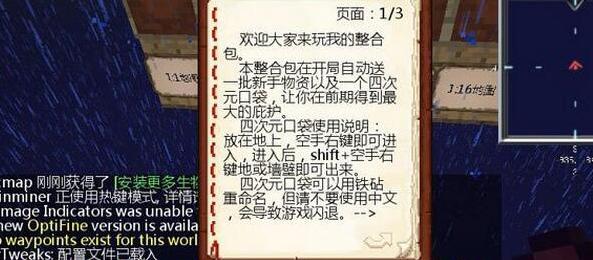 页面：1/3
欢迎大家来玩我的整合
包。
本整合包在开局自动送
一批新手物资以及一个四次
元口袋，让你在前期得到最
大的庇护。
四次元口袋使用说明：
放在地上，空手右键即可进
入，进入后，shift+空手右
键地或墙壁即可出来。
四次元口袋可以用铁砧
重命名，但请不要使用中文
，会导致游戏闪退。-->
map 刚刚获得了 [安装更多生物
inminer 正使用热键模式, 详情
mage Indicators was unable
new OptiFine version is availa
waypoints exist for this worl
Tweaks: 配置文件已载入